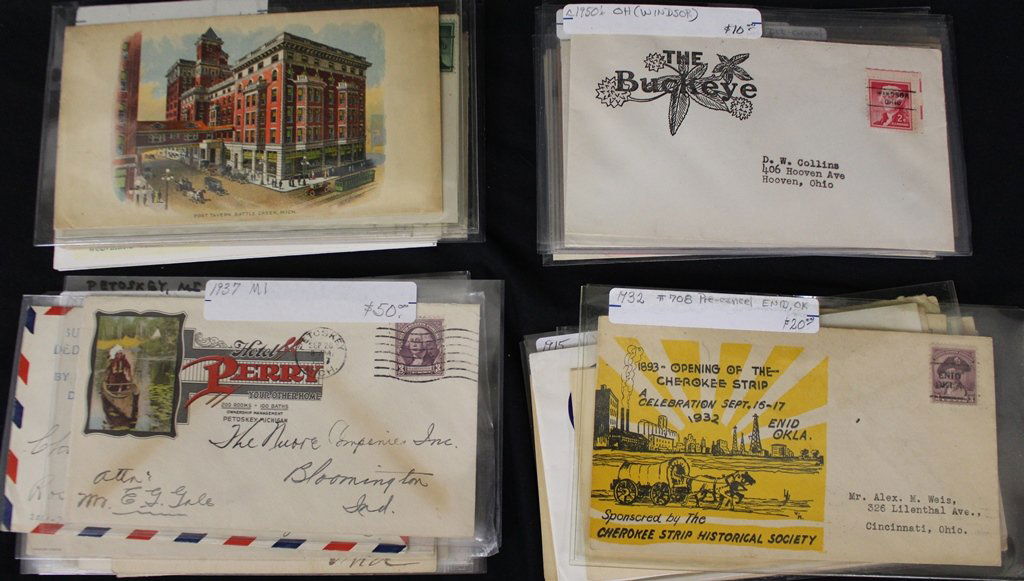 POST TAVERN, BATTLE CREEK, MICH.
c1950's OH (WINDSOR)
$10.00
THE
Buckeye
WINDSOR
OHIO
2¢
D. W. Collins
406 Hooven Ave
Hooven, Ohio
PETOSKEY, MI
1937 MI
$50.00
Hotel
PERRY
"YOUR OTHER HOME"
200 ROOMS - 100 BATHS
OWNERSHIP MANAGEMENT
PETOSKEY-MICHIGAN
PETOSKEY
SEP 20
MICH.
3
The Nurre Companies Inc.
Bloomington
Ind.
attn:
Mr. E. G. Gale
SU
DED
BY
D
1932 #708 Pre-cancel ENID, OK
$20.00
1915
1893 - OPENING OF THE
CHEROKEE STRIP
A
CELEBRATION SEPT. 16-17
1932
ENID
OKLA.
Sponsored by The
CHEROKEE STRIP HISTORICAL SOCIETY
ENID
OKLA.
Mr. Alex. M. Weis,
326 Lilenthal Ave.,
Cincinnati, Ohio.